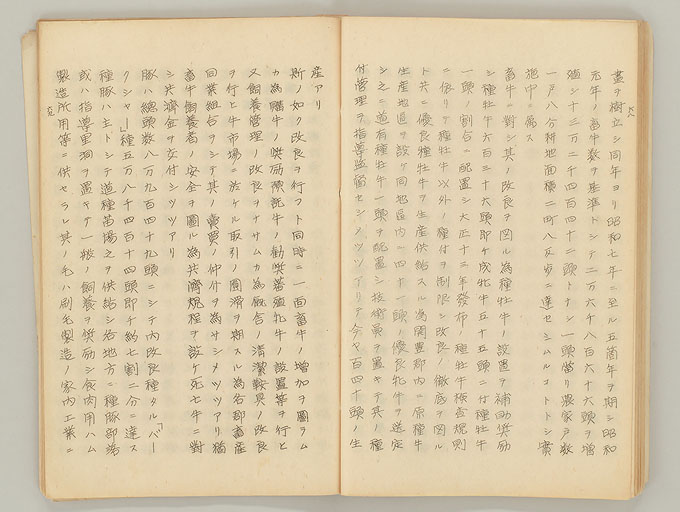 畫ヲ樹立シ同年ヨリ昭和七年ニ至ル五箇年ヲ期シ昭和
元年ノ畜牛数ヲ基準トシテ二万六千八百六十六頭ヲ増
殖シ十三万二千四百四十二頭トナシ一頭當リ濃家戸数
一戸八分耕地面積二町八反歩ニ達セシムルコトトシ實
施中ニ属ス
畜牛ニ對シ其ノ改良ヲ図ル為種牡牛ノ設置ヲ補助奨励
シ種牡牛六百三十六頭即チ成牝牛五十五頭ニ付種牡牛
一頭ノ割合ニ配置シ大正十三年發布ノ種牡牛検査規則
ニ依リテ種牡牛以外ノ種付ヲ制限シ改良ノ徹底ヲ図ル
ト共ニ優良種牡牛ヲ生産供給スル為開豊郡内ニ原種牛
生産地區ヲ設ケ同地區内ニ四十一頭ノ優良牝牛ヲ選定
シ之ニ道有種牡牛一頭ヲ配置シ技術員ヲ置キテ其ノ種
付管理ヲ指導監督セシメツツアリテ今ヤ百四十頭ノ生
六八
産アリ
斯ノ如ク改良ヲ行フト同時ニ一面畜牛ノ増加ヲ圖ラム
カ為購牛ノ奨励預託牛ノ勧奨蕃殖牝牛ノ設置等ヲ行ヒ
又飼養管理ノ改良ヲナサムカ為畜舎ノ清潔鞍具ノ改良
ヲ行ヒ牛市場ニ於ケル取引ノ圓滑ヲ期スル為各郡畜産
同業組合ヲシテ其ノ賣買ノ仲介ヲ為サシメツツアリ猶
畜牛飼養者ノ安全ヲ圖ル為共濟規程ヲ設ケ死亡牛ニ對
シ共濟金ヲ交付シツツアリ
豚ハ總頭数八万九百四十九頭ニシテ内改良種タル「バー
クシャー」種五万八千四百十四頭即チ約七割二分ニ達ス
種豚ハ主トシテ道種苗場之ヲ供給シ各地方ニ種豚部落
或ハ指導里洞ヲ置キテ一般ノ飼養ヲ奨励シ食肉用ハム
製造所用等ニ供セラレ其ノ毛ハ刷毛製造ノ家内工業ニ
六九